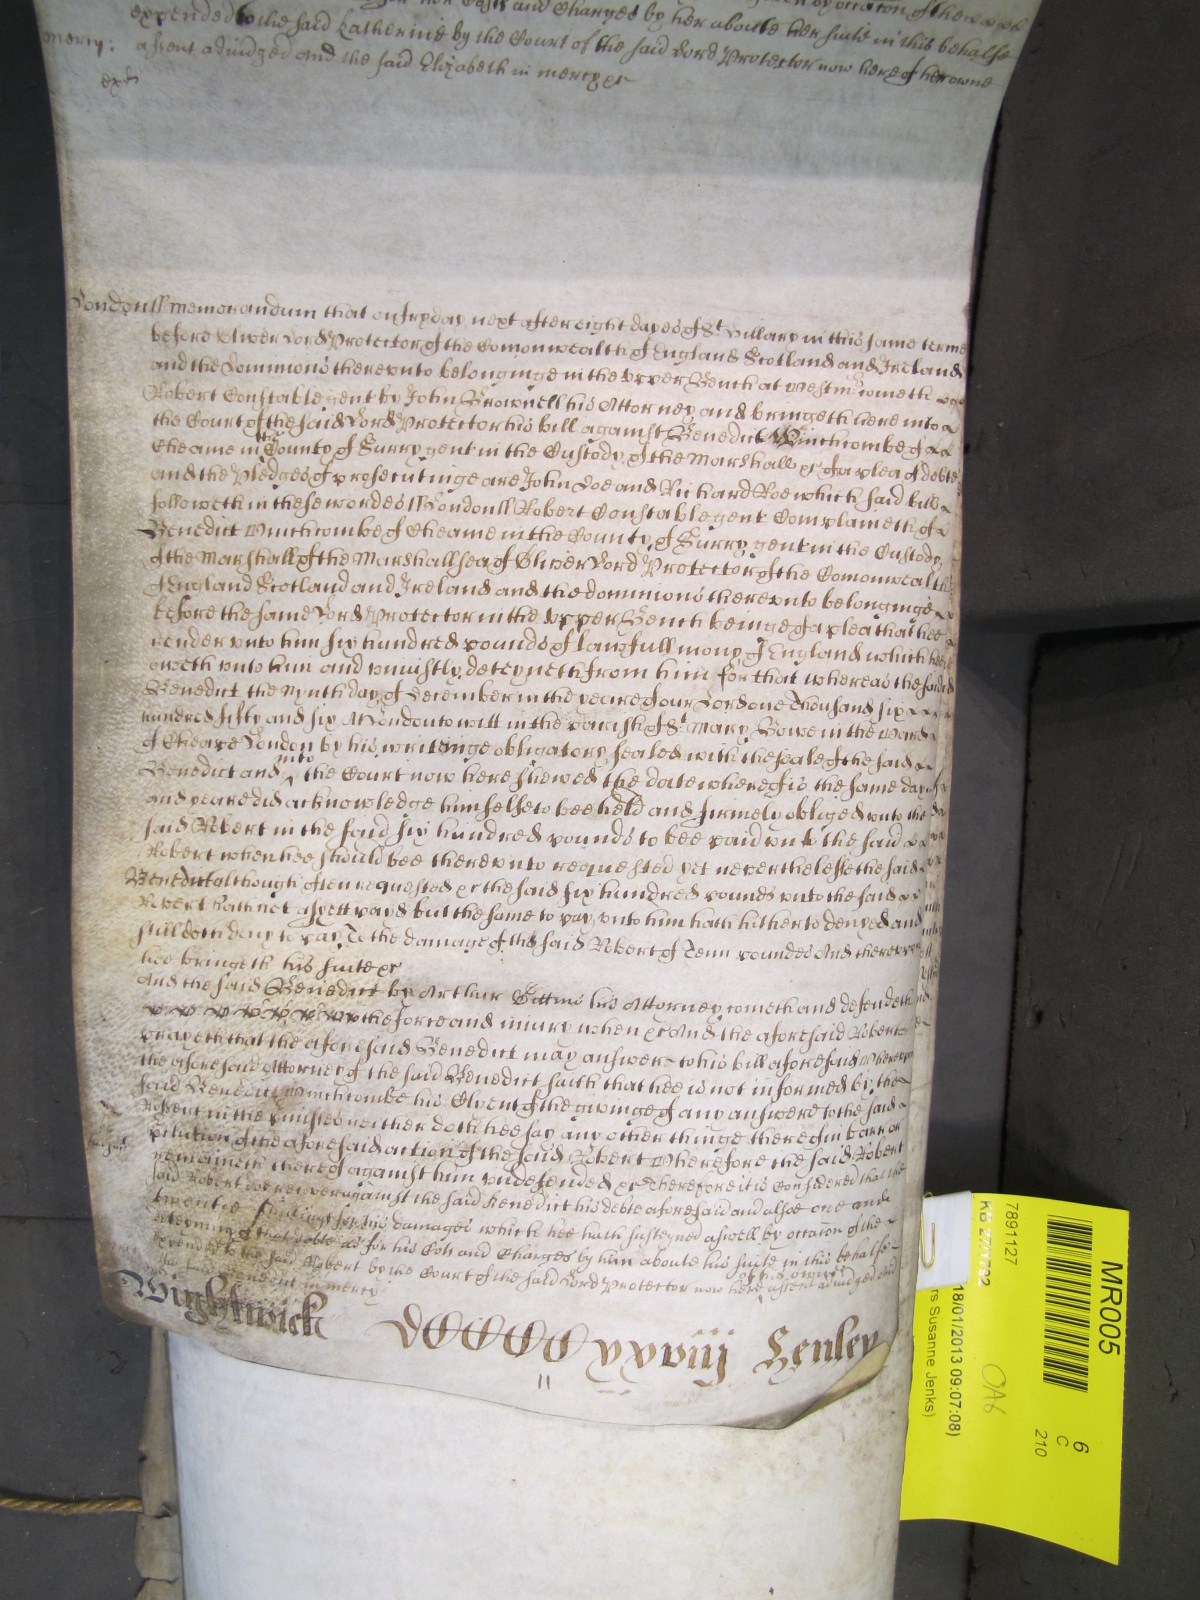 for her Costs and Charges by her aboute her suite in this behalfe
expended to the said Katherine by the Court of the said Lord Protector now here of her owne
mercy: assent adiudged and the said Elizabeth in mercy &c
London ss Memorandum that on fryday next after eight dayes of St Hillary in this same terme
before Oliver Lord Protector of the Comonwealth of England Scotland and Ireland
and the Dominions thereunto belonginge in the upper Bench at Westmr cometh
Robert Constable gent by John Brownell his Attorney and bringeth here into
the Court of the said Lord Protector his bill against Benedict Winchcombe of
Cheame in the County of Surry gent in the Custody of the Marshall &c of a plea of debte
and the Pledges of prosecutinge are John Doe and Richard Roe which said bill
followeth in these wordes ss London ss Robert Constable gent Complaineth of
Benedict Winchcombe of Cheame in the County of Surry gent in the Custody
of the Marshall of the Marshallsea of Oliver Lord Protector of the Comonwealth
of England Scotland and Ireland and the dominions thereunto belonginge
before the same Lord Protector in the upper Bench beinge of a plea that hee
render unto him six hundred pounds of lawfull mony of England which hee
oweth unto him and uniustly deteyneth from him for that whereas the said
Benedict the Nynth day of December in the yeare of our Lord one Thousand six
hundred fifty and six At London to witt in the parish of St Mary Bowe in the Ward
of Cheape London by his writeinge obligatory sealed with the seale of the said
Benedict and into the Court now here shewed the date whereof is the same day
and yeare did acknowledge himselfe to bee held and firmely obliged unto the
said Robert in the said six hundred pounds to bee paid unto the said
Robert when hee should bee thereunto requested yet neverthelesse the said
Benedict although often requested &c the said six hundred pounds unto the said
Robert hath not as yett payd but the same to pay unto him hath hitherto denyed and
still doth deny to pay To the damage of the said Robert of Tenn pounds And thereupon
hee bringeth his suite &c
And the said Benedict by Arthur Gittins his Attorney cometh and defendeth
the force and iniury when &c And the aforesaid Robert
prayeth that the aforesaid Benedict may answer to his bill aforesaid Whereupon
the aforesaid Attorney of the said Benedict saith that hee is not informed by the
said Benedict Winchcombe his Clyent of the givinge of any answere to the said
Robert in the premisses neither doth hee say any other thinge thereof in barr or
preclusion of the aforesaid action of the said Robert Wherefore the said Robert
remaineth thereof against him undefended &c Therefore it is Considered that the
said Robert doe recover against the said Benedict his debte aforesaid and alsoe one and
twenty shillings for his damages which hee hath susteyned aswell by occaĉon of the
deteyning of that debte as for his Costs and Charges by him aboute his suite in this behalfe
expended to the said Robert by the Court of the said Lord Protector now here of his owne assent adiudged And
the said Benedict in mercy
Wightwick xxviij Henley
MR005
6
C
210
7891127
KB 27/1792
OA6
18/01/2013 09:07:08)
rs Susanne Jenks)